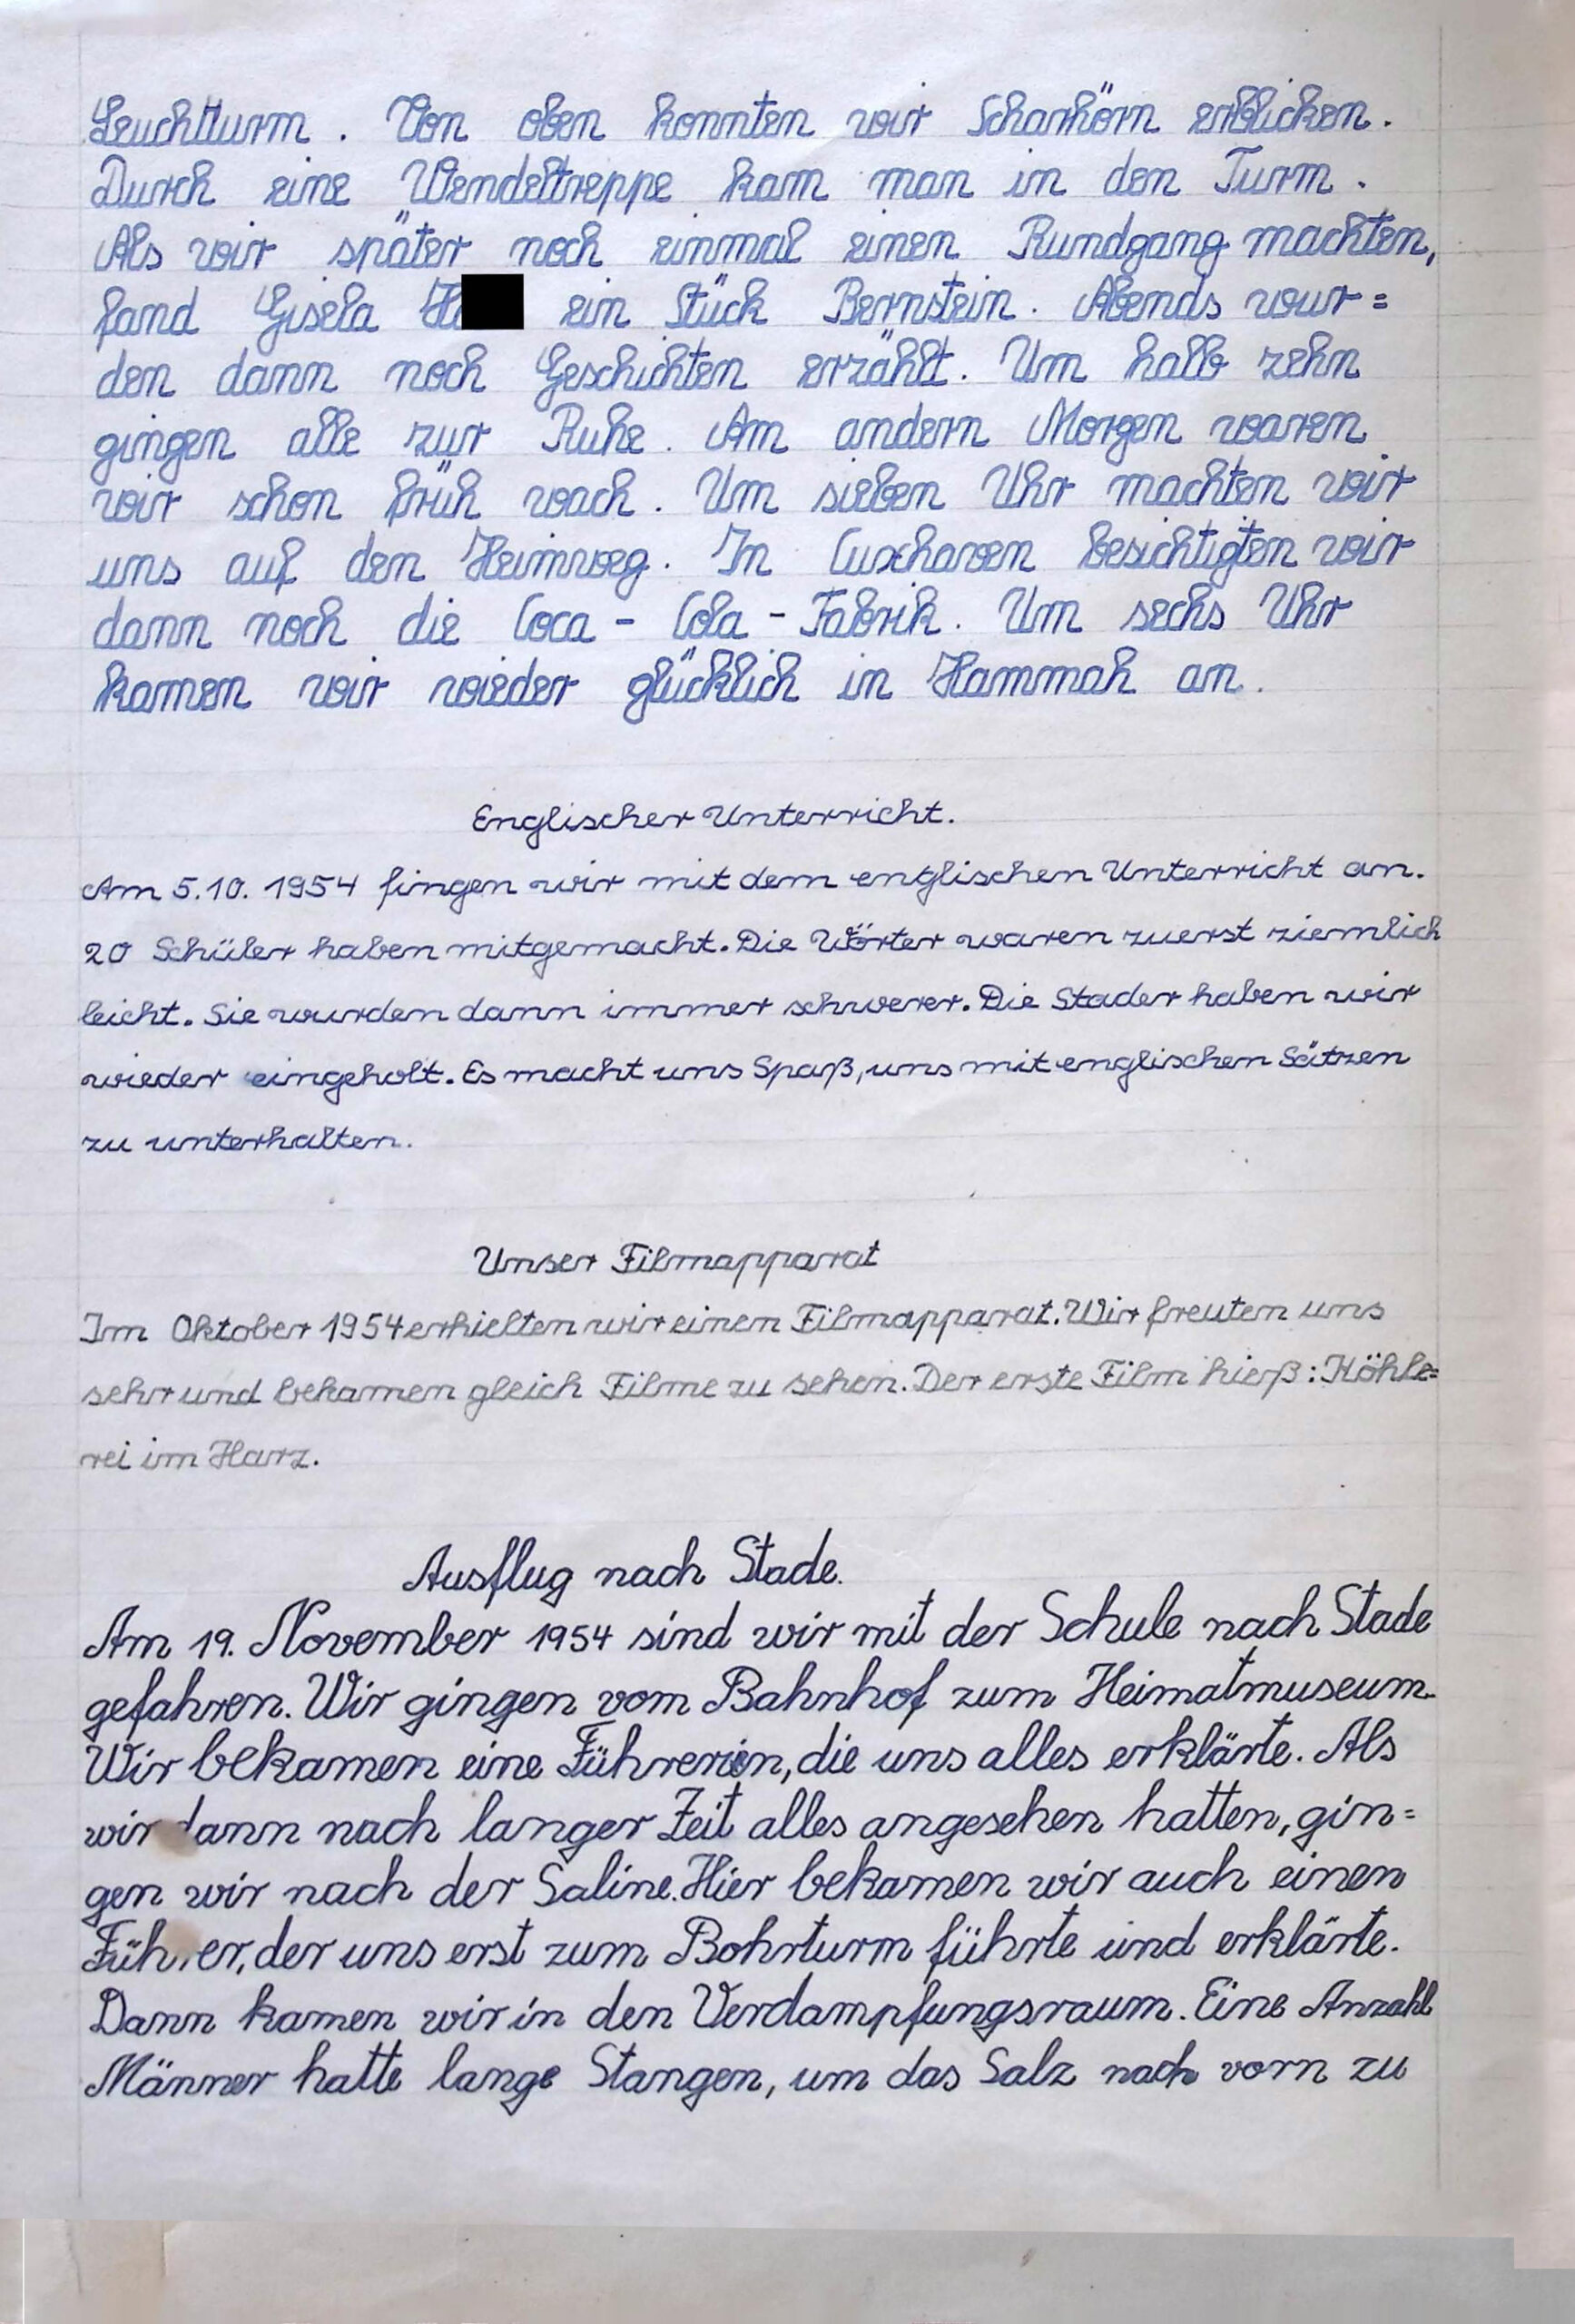 Leuchtturm. Von oben konnten wir Scharhörn erblicken.
Durch eine Wendeltreppe kam man in den Turm.
Als wir später noch einmal einen Rundgang machten,
fand Gisela H ein Stück Bernstein. Abends wur=
den dann noch Geschichten erzählt. Um halb zehn
gingen alle zur Ruhe. Am andern Morgen waren
wir schon früh wach. Um sieben Uhr machten wir
uns auf den Heimweg. In Cuxhaven besichtigten wir
dann noch die Coca - Cola - Fabrik. Um sechs Uhr
kamen wir wieder glücklich in Hammah an.
Englischer Unterricht.
Am 5.10. 1954 fingen wir mit dem englischen Unterricht an.
20 Schüler haben mitgemacht. Die Wörter waren zuerst ziemlich
leicht. Sie wurden dann immer schwerer. Die Stader haben wir
wieder eingeholt. Es macht uns Spaß, uns mit englischen Sätzen
zu unterhalten.
Unser Filmapparat
Im Oktober 1954 erhielten wir einen Filmapparat. Wir freuten uns
sehr und bekamen gleich Filme zu sehen. Der erste Film hieß: Köhle=
rei im Harz.
Ausflug nach Stade.
Am 19. November 1954 sind wir mit der Schule nach Stade
gefahren. Wir gingen vom Bahnhof zum Heimatmuseum.
Wir bekamen eine Führerin, die uns alles erklärte. Als
wir dann nach langer Zeit alles angesehen hatten, gin=
gen wir nach der Saline. Hier bekamen wir auch einen
Führer, der uns erst zum Bohrturm führte und erklärte.
Dann kamen wir in den Verdampfungsraum. Eine Anzahl
Männer hatte lange Stangen, um das Salz nach vorn zu